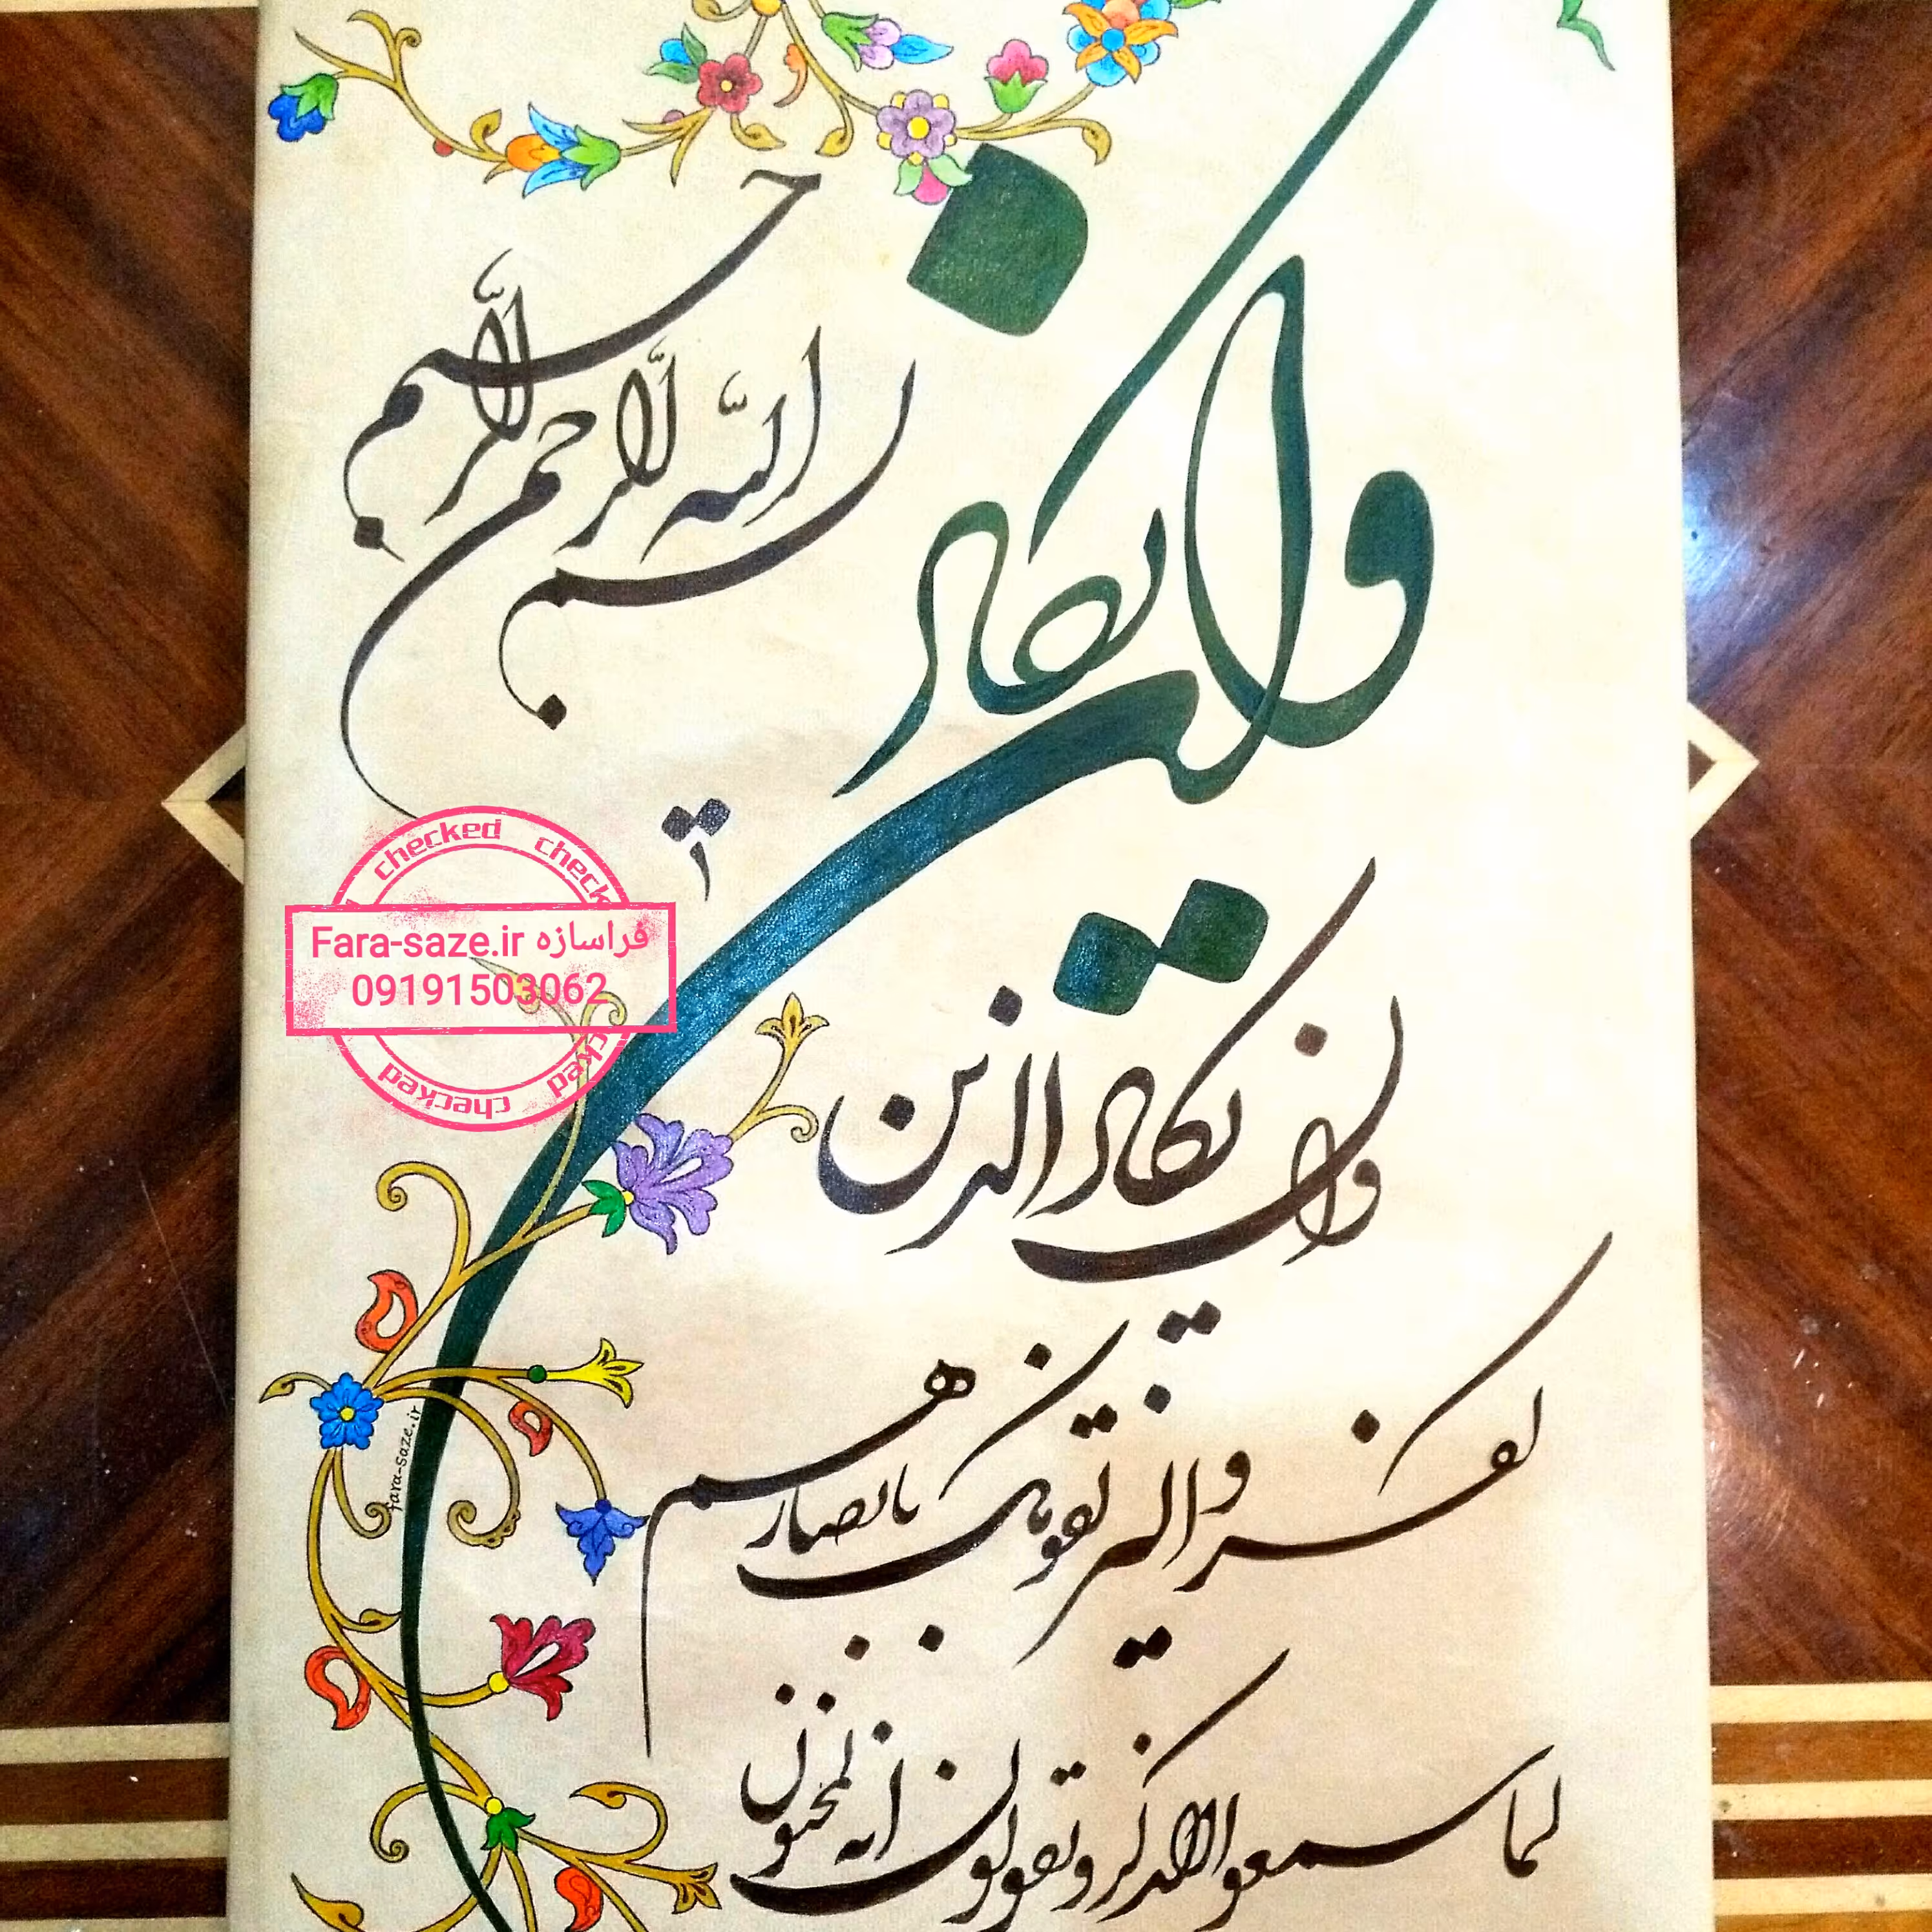 بسم الله الرحمن الرحیم
وان یکاد
وان یکاد الذین
کفروا لیزلقونک بابصارهم
لما سمعوا الذکر و یقولون انه لمجنون
checked checked
فراسازه Fara-saze.ir
09191503062
checked checked
fara-saze.ir